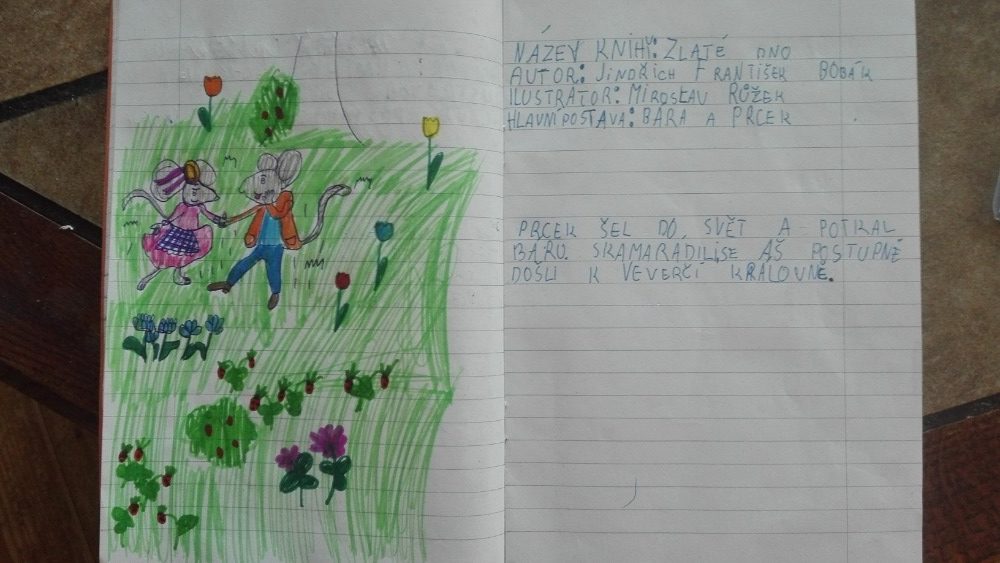 NÁZEV KNIHY: ZLATÉ DNO
AUTOR: JINDŘICH FRANTIŠEK BOBÁK
ILUSTRÁTOR: MIROSLAV RŮŽEK
HLAVNÍ POSTAVA: BÁRA A PRCEK
PRCEK ŠEL DO SVĚT A POTKAL
BÁRU. SKAMARÁDILISE AŠ POSTUPNĚ
DOŠLI K VEVERČÍ KRÁLOVNĚ.